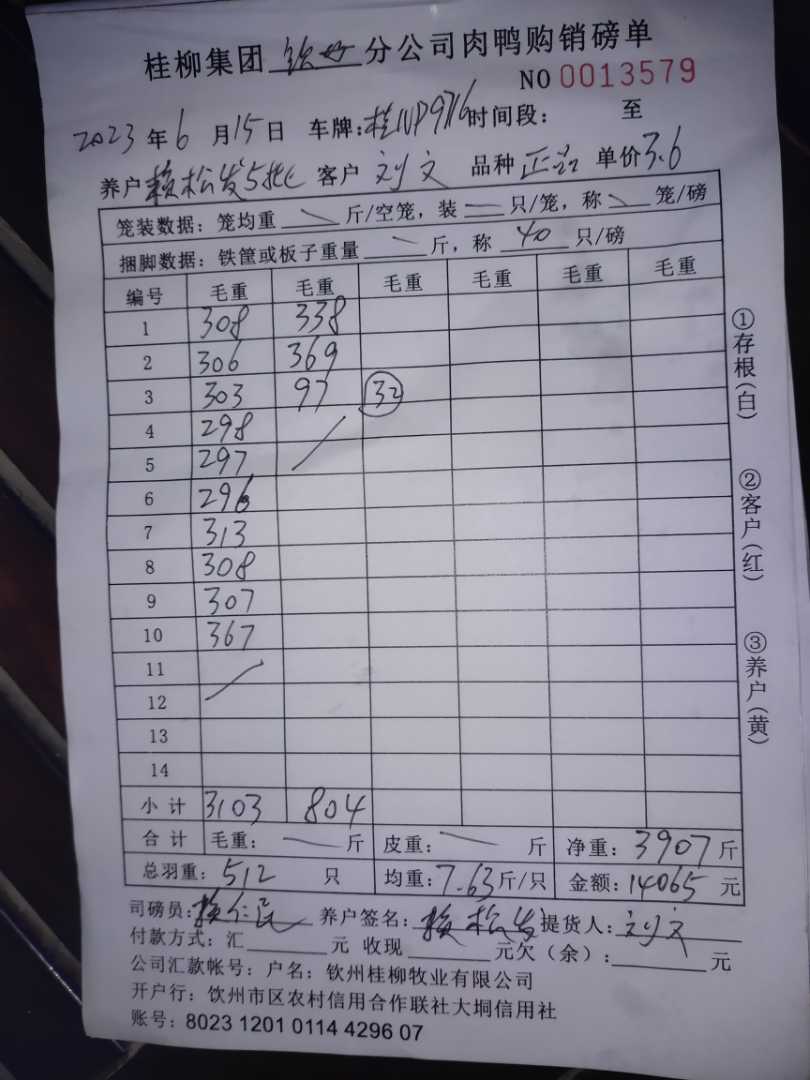 桂柳集团钦州分公司肉鸭购销磅单
NO 0013579
2023年6月15日 车牌:桂NP9716时间段: 至
养户赖松发5批 客户刘文 品种正品 单价3.6
笼装数据:笼均重 斤/空笼,装 只/笼,称 笼/磅
捆脚数据:铁筐或板子重量 斤,称40只/磅
编号 毛重 毛重 毛重 毛重 毛重 毛重
1 308 338
2 306 369
3 303 97 32
4 298
5 297
6 296
7 313
8 308
9 307
10 367
11
12
13
14
小计 3103 804
合计 毛重: 斤 皮重: 斤 净重:3907斤
总羽重:512只 均重:7.63斤/只 金额:14065元
司磅员:赖仁民 养户签名:赖松发 提货人:刘文
付款方式:汇 元 收现 元欠(余): 元
公司汇款帐号:户名:钦州桂柳牧业有限公司
开户行:钦州市区农村信用合作联社大垌信用社
账号:8023 1201 0114 4296 07
①存根(白)
②客户(红)
③养户(黄)